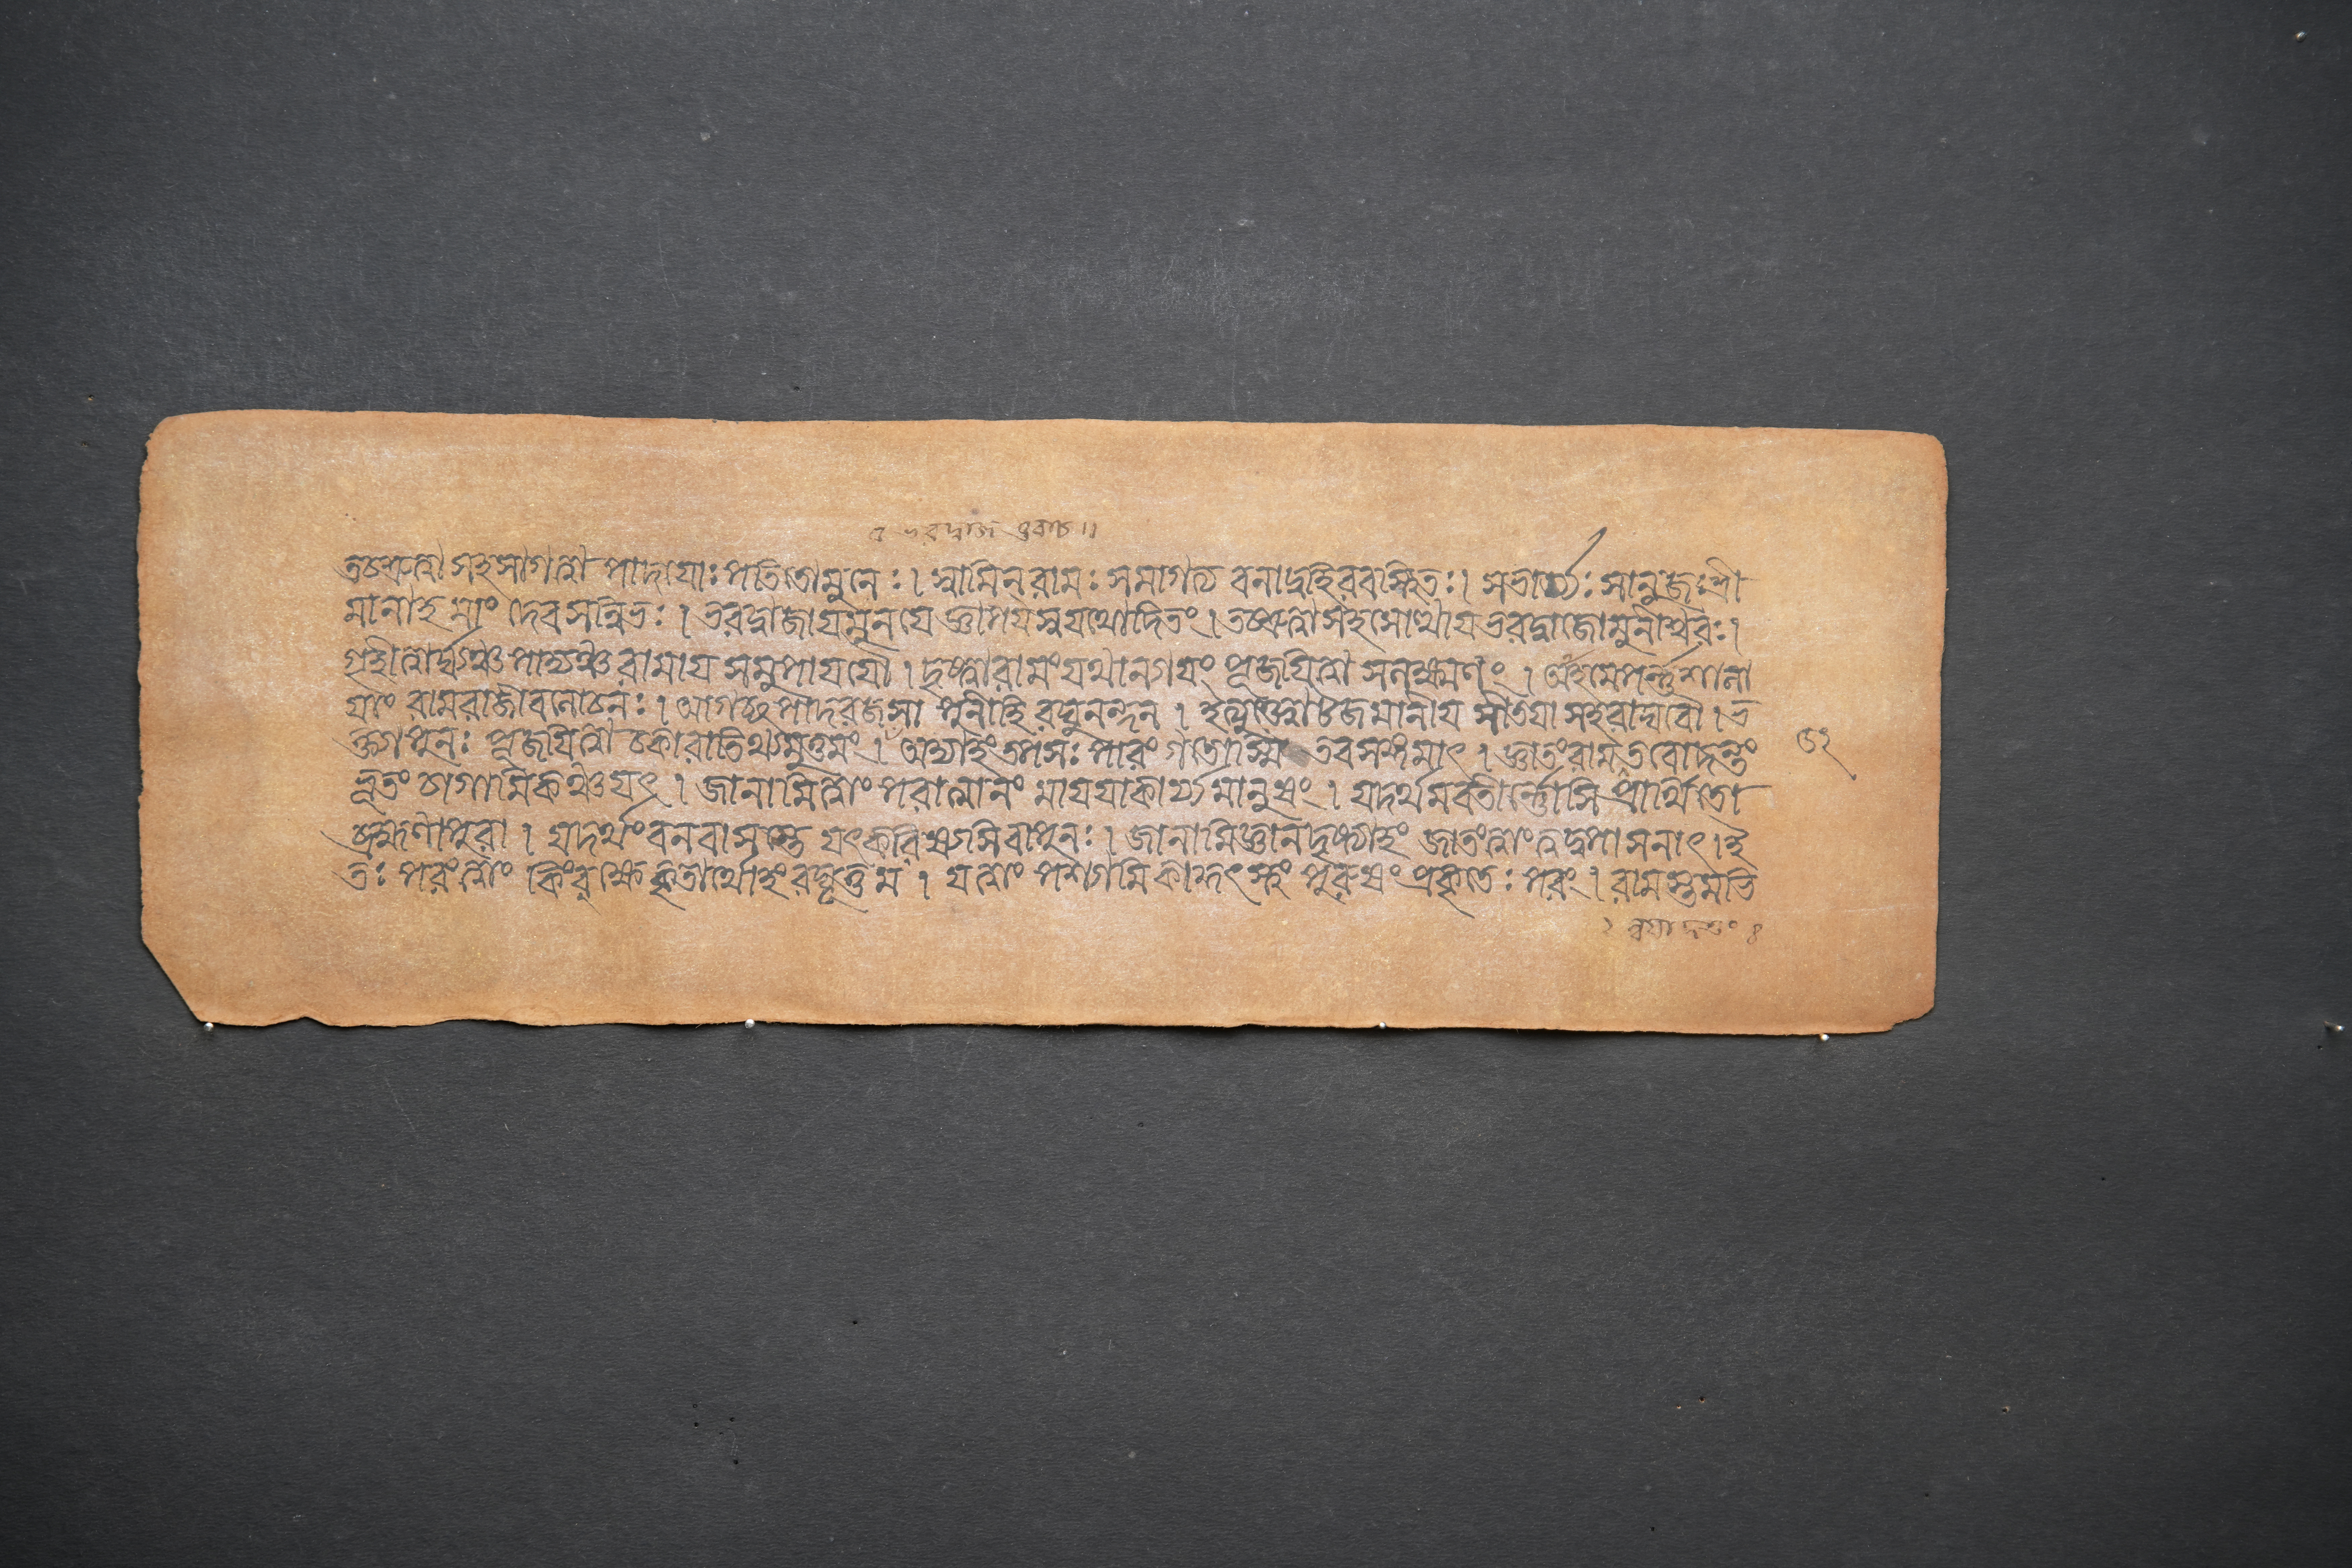 ভরদ্বাজ উবাচ॥
তচ্ছ্রুত্বা সহসাগত্বা পাদয়োঃ পতিতো মুনেঃ। স্বামিন্ রামঃ সমাগত্য বনাদ্বহিরবস্থিতঃ। সভার্য্যঃ সানুজঃ শ্রী
মানাহ মাং দেবসন্নিভঃ। ভরদ্বাজায় মুনয়ে জ্ঞাপয়স্ব যথোদিতং। তচ্ছ্রুত্বা সহসোত্থায় ভরদ্বাজো মুনীশ্বরঃ।
গৃহীত্বার্ঘ্যঞ্চ পাদ্যঞ্চ রামায় সমুপাযযৌ। দৃষ্ট্বা রামং যথান্যায়ং পূজয়িত্বা সলক্ষ্মণং। আহ মে পর্ন্নশালা
য়াং রাম রাজীবলোচনঃ। আগচ্ছ পাদরজসা পুনীহি রঘুনন্দন। ইত্যুক্ত্বোটজমানীয় সীতয়া সহ রাঘবৌ। ভ
ক্ত্যা পুনঃ পূজয়িত্বা চকারাতিথ্যমুত্তমং। অদ্যাহং তপসঃ পারং গতোস্মি তব সঙ্গমাৎ। জ্ঞাতং রাম তবোদন্তং
ভূতং চাগামিকঞ্চ যৎ। জানামি ত্বাং পরাত্মানং মায়য়া কার্য্যমানুষং। যদর্থমবতীর্ন্নোসি প্রার্থিতো
ব্রহ্মণা পুরা। যদর্থং বনবাসস্তে যৎ করিষ্যসি বৈ পুনঃ। জানামি জ্ঞানদৃষ্ট্যাহং জাতং ত্বাং ত্বদুপাসনাৎ। ই
তঃ পরং ত্বাং কিং বক্ষ্যে কৃতার্থোহং রঘূত্তম। যত্ত্বাং পশ্যামি কাকুৎস্থং পুরুষং প্রকৃতেঃ পরং। রামস্তমভি
৫২